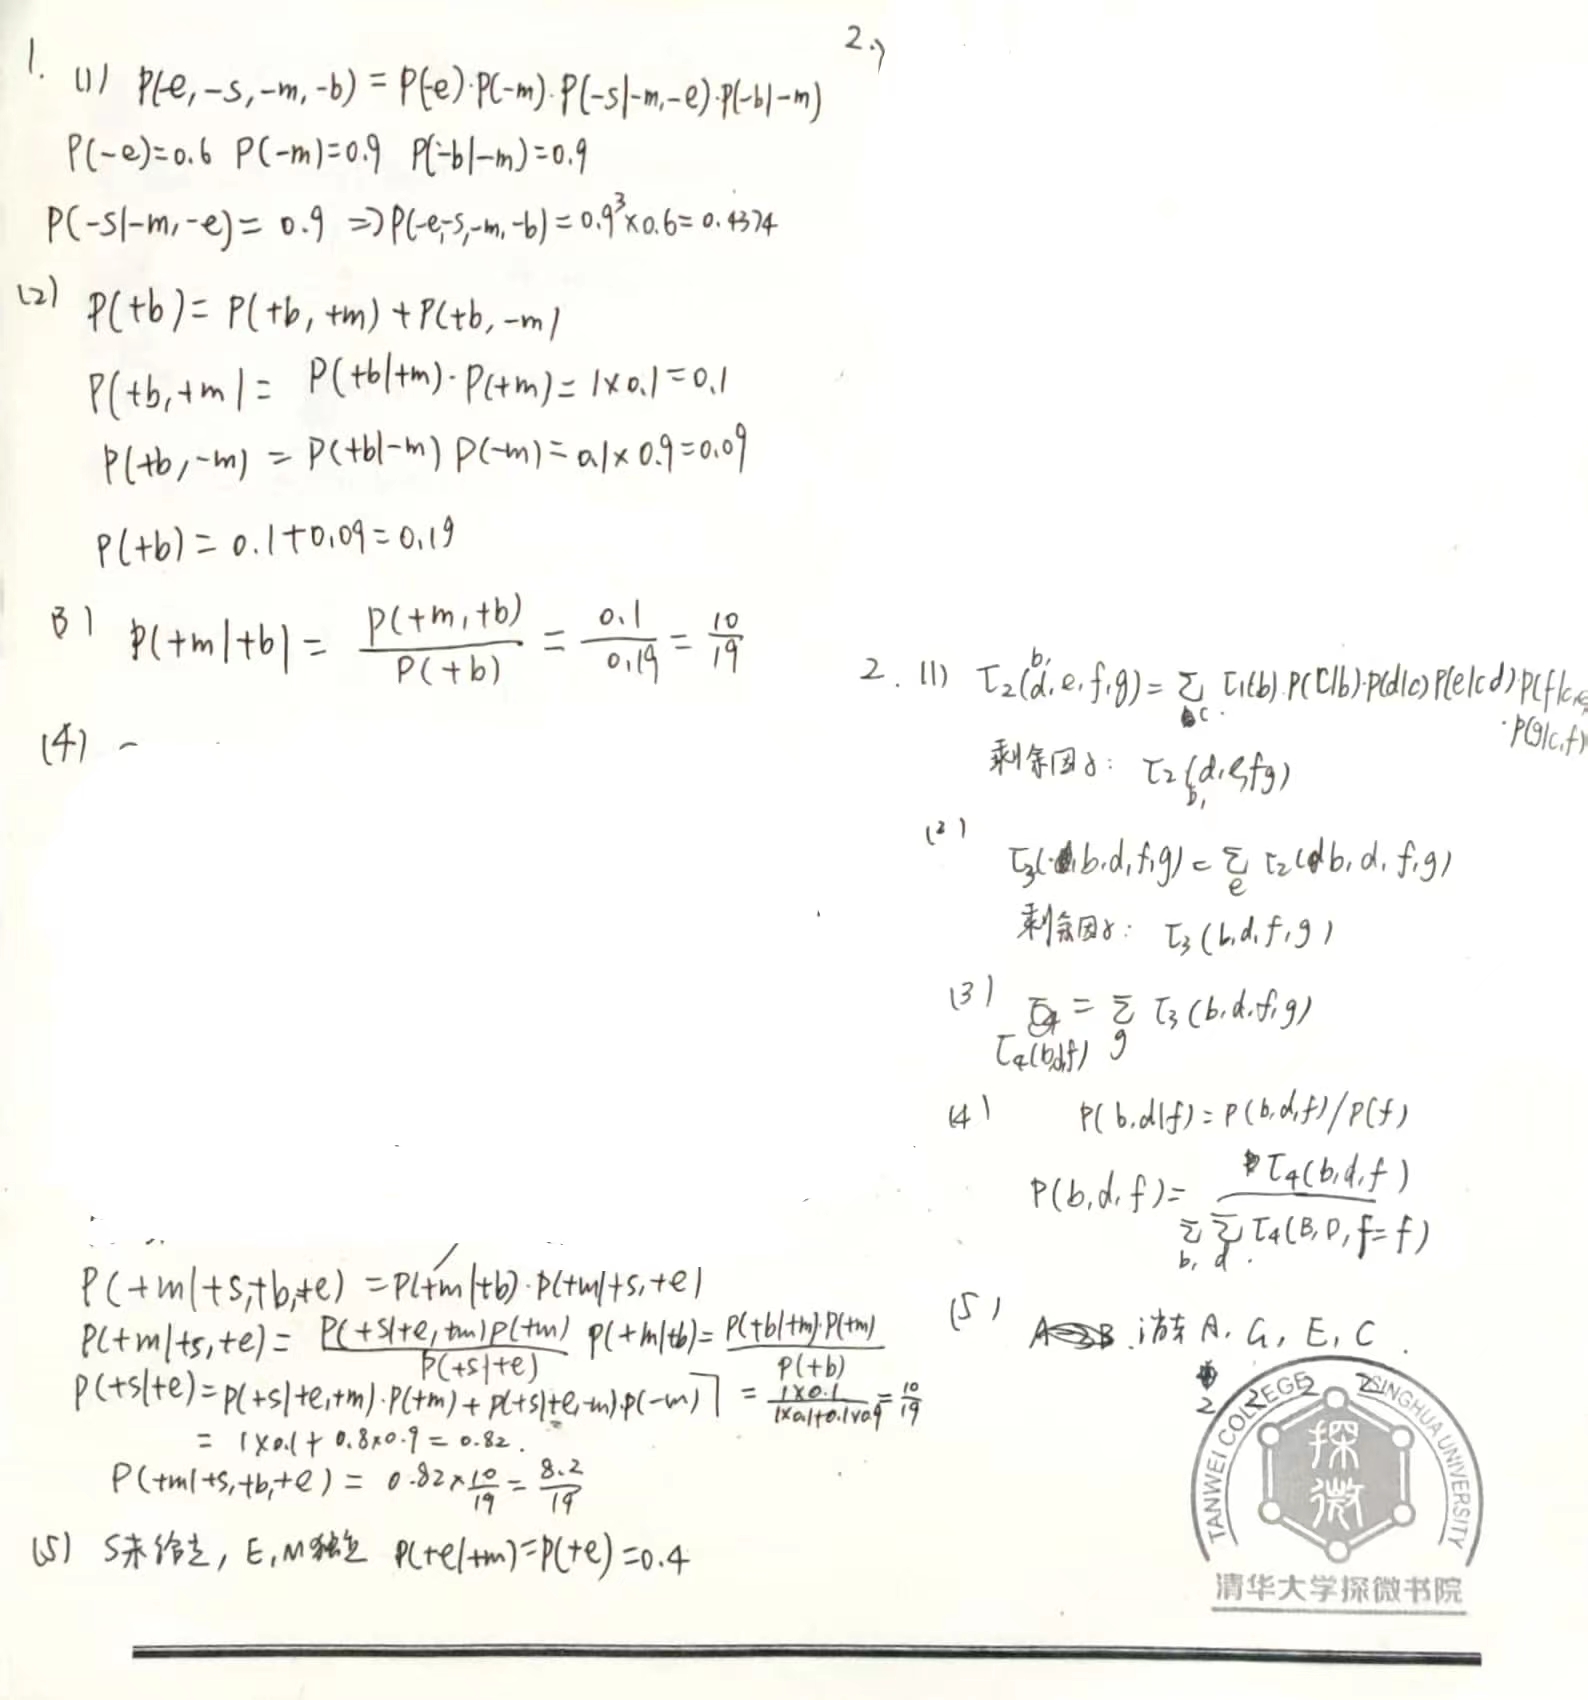 1. (1) P(-e, -s, -m, -b) = P(-e)·P(-m)·P(-s|-m,-e)·P(-b|-m)
P(-e)=0.6 P(-m)=0.9 P(-b|-m)=0.9
P(-s|-m,-e)= 0.9 => P(-e,-s,-m,-b)=0.9³×0.6=0.4374
(2) P(+b)= P(+b, +m) + P(+b, -m)
P(+b,+m)= P(+b|+m)·P(+m)= 1×0.1=0.1
P(+b,-m) = P(+b|-m) P(-m)= 0.1×0.9=0.09
P(+b)= 0.1+0.09=0.19
(3) P(+m|+b)= P(+m,+b)/P(+b) = 0.1/0.19 = 10/19
(4)
P(+m|+s,+b,+e) =P(+m|+b)·P(+m|+s,+e)
P(+m|+s,+e)= P(+s|+e,+m)P(+m)/P(+s|+e) P(+m|+b)= P(+b|+m)·P(+m)/P(+b)
P(+s|+e)=P(+s|+e,+m)·P(+m)+P(+s|+e,-m)·P(-m) = 1×0.1/1×0.1+0.1×0.9 = 10/19
= 1×0.1+ 0.8×0.9= 0.82.
P(+m|+s,+b,+e)= 0.82×10/19 = 8.2/19
(5) S未给定, E,M独立 P(+e|+m)=P(+e)=0.4
2.
2. (1) τ2(b,d,e,f,g)= Σc τ1(b)·P(c|b)·P(d|c)P(e|c d)·P(f|c,e)
·P(g|c,f)
剩余因子: τ2(b,d,e,f,g)
(2)
τ3(b,d,f,g)= Σe τ2(b,d,f,g)
剩余因子: τ3(b,d,f,g)
(3) = Σg τ3(b,d,f,g)
τ4(b,d,f)
(4) P(b,d|f)=P(b,d,f)/P(f)
P(b,d,f)= τ4(b,d,f)/Σb,Σd τ4(B,D,F=f)
(5) 消去 A, G, E, C.
2 2 2 2
TANWEI COLLEGE TSINGHUA UNIVERSITY
探微
清华大学探微书院